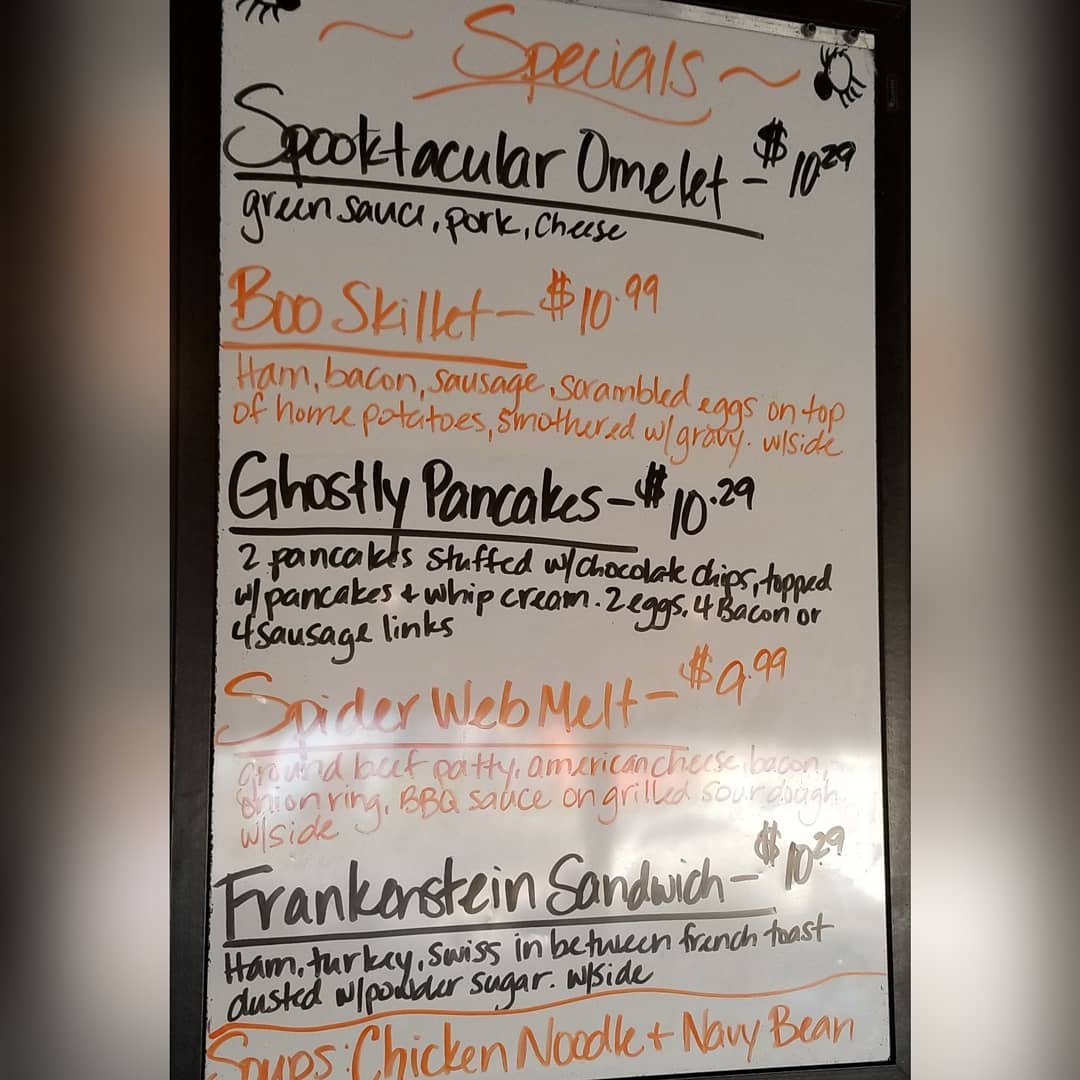 ~ Specials ~
Spooktacular Omelet - $10.29
green sauce, pork, cheese
Boo Skillet - $10.99
Ham, bacon, sausage, scrambled eggs on top
of home potatoes, smothered w/gravy. w/side
Ghostly Pancakes - $10.29
2 pancakes stuffed w/chocolate chips, topped
w/pancakes + whip cream. 2 eggs, 4 Bacon or
4 sausage links
Spider Web Melt - $9.99
ground beef patty, american cheese, bacon,
onion ring, BBQ sauce on grilled sourdough
w/side
Frankenstein Sandwich - $10.29
Ham, turkey, swiss in between french toast
dusted w/powder sugar. w/side
Soups: Chicken Noodle + Navy Bean